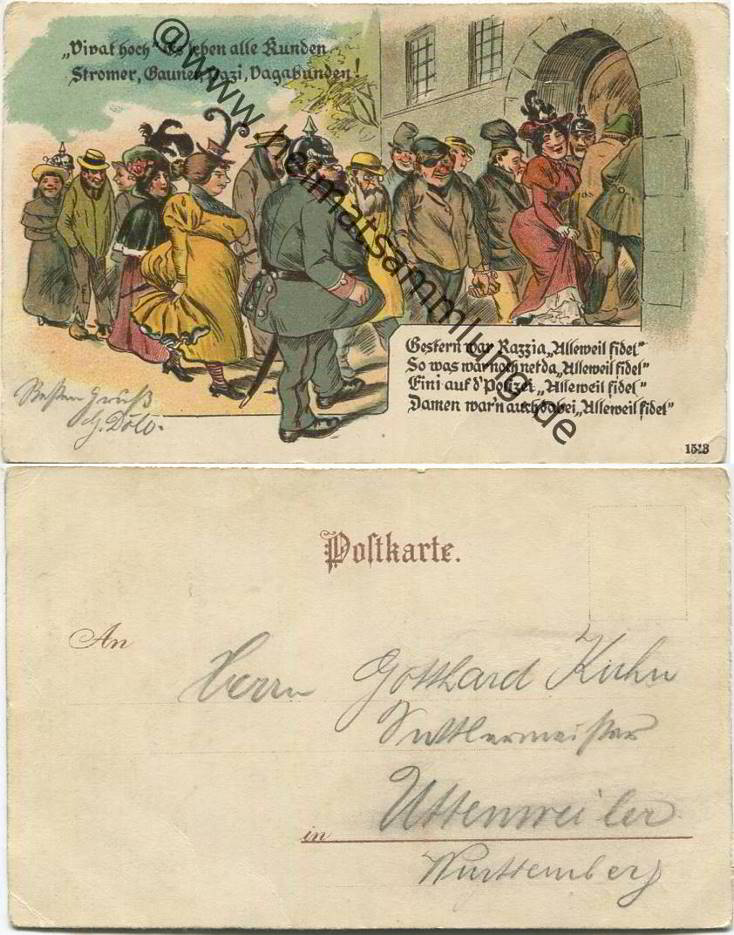 „Vivat hoch" Es leben alle Kunden
Stromer, Gauner, Bazi, Vagabunden!
@www.heimatsammlung.de
Gestern war Razzia „Alleweil fidel"
So was war noch net da, „Alleweil fidel"
Eini auf d'Polizei „Alleweil fidel"
Damen war'n auch dabei, „Alleweil fidel"
Besten Gruß
G.
1528
Postkarte.
An
Herrn Gotthard Kuhn
Sattlermeister
Uttenweiler
in
Württemberg